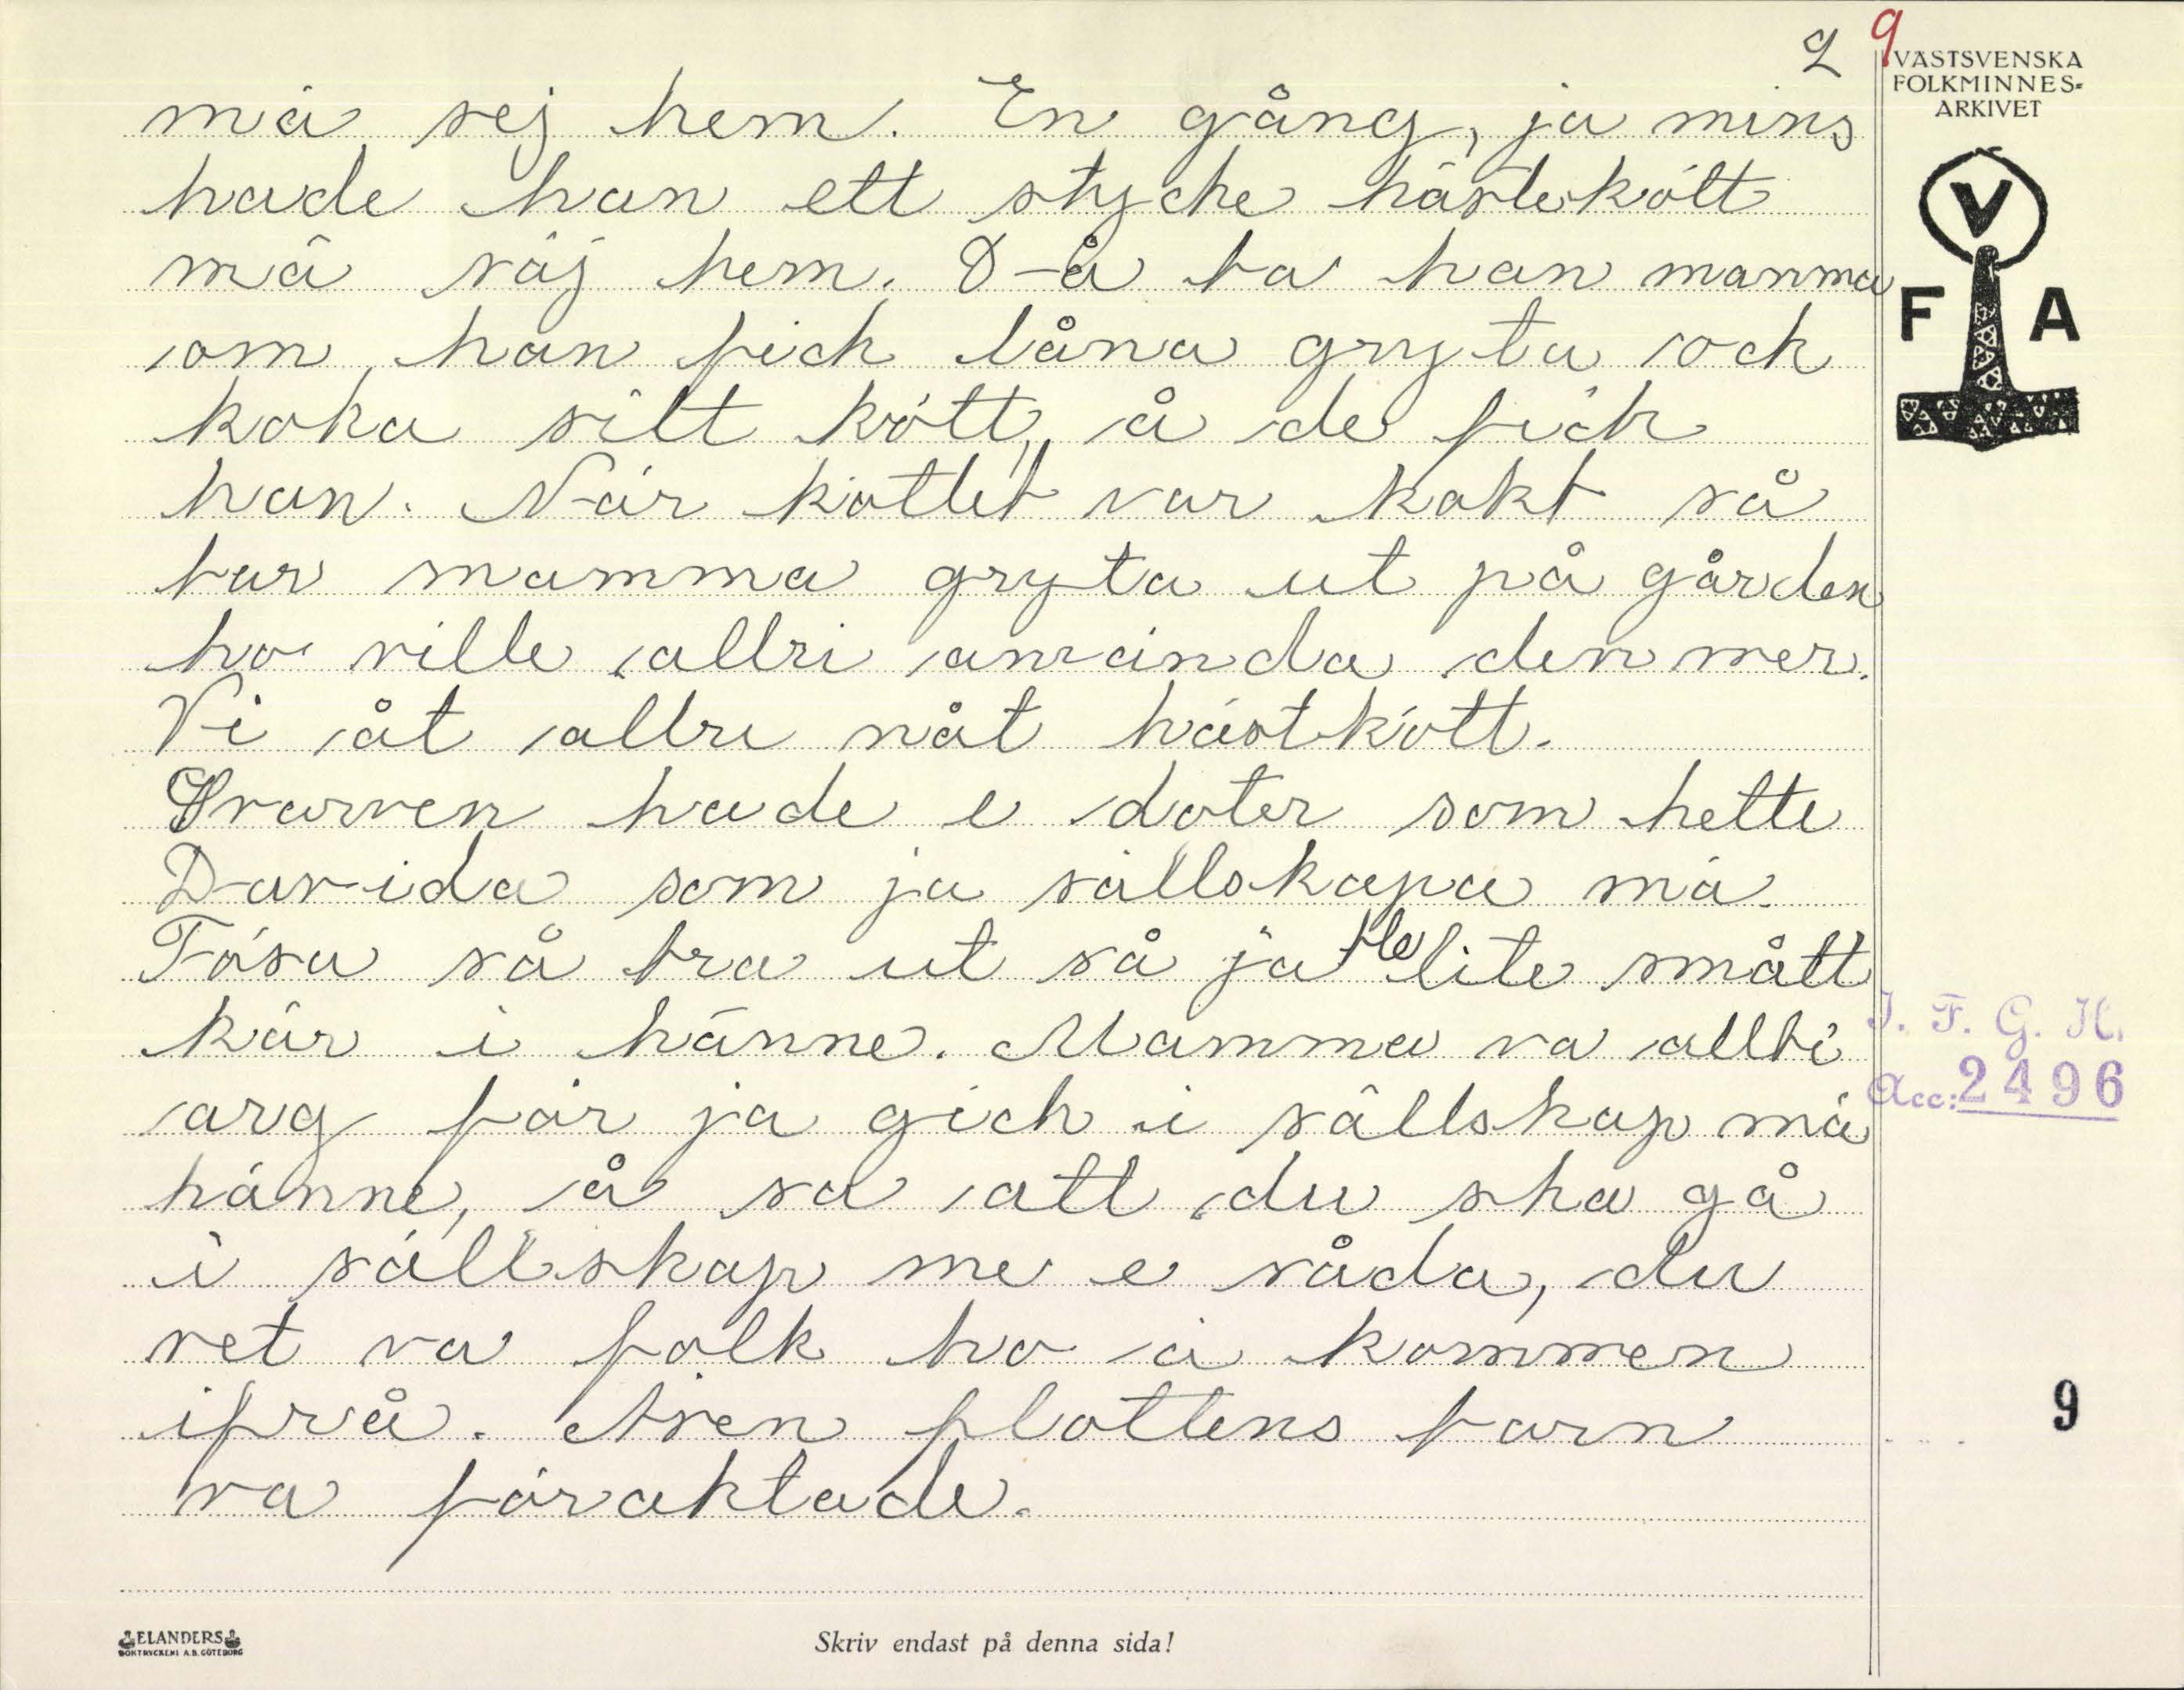 2 9
VÄSTSVENSKA
FOLKMINNES-
ARKIVET
V
F A
mä sej hem. En gång, ja mins
hade han ett stycke hästekött
mä säj hem. Då ba han mamma
om han fick låna gryta och
koka sitt kött, å de fick
han. När köttet var kokt så
bar mamma gryta ut på gården
ho ville alldri använda den mer.
Vi åt alldri nåt hästkött.
Svarven hade e doter som hette
Davida som ja sällskapa mä.
Tösa så bra ut så ja ble lite smått
kär i hänne. Mamma va allti
arg för ja gick i sällskap mä
hänne, å sa att du ska gå
i sällskap me e såda, du
vet va folk ho ä kommen
ifrå. Även flottens barn
va föraktade.
I. F. G. H.
Acc: 2496
9
ELANDERS
BOKTRYCKERI A.B. GÖTEBORG
Skriv endast på denna sida!